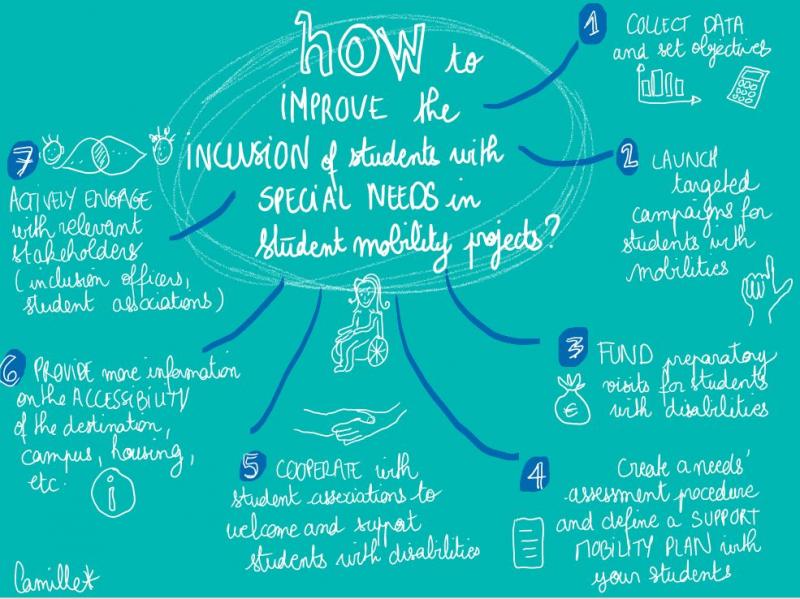 HOW to
IMPROVE the
INCLUSION of students with
SPECIAL NEEDS in
student mobility projects?
1
COLLECT DATA
and set objectives
2
LAUNCH
targeted
campaigns for
students with
mobilities
3
FUND preparatory
visits for students
with disabilities
€
4
Create a needs'
assessment procedure
and define a SUPPORT
MOBILITY PLAN with
your students
5
COOPERATE with
student associations to
welcome and support
students with disabilities
6
PROVIDE more information
on the ACCESSIBILITY
of the destination,
campus, housing,
etc.
i
7
ACTIVELY ENGAGE
with relevant
stakeholders
(inclusion officers,
student associations)
Camille*